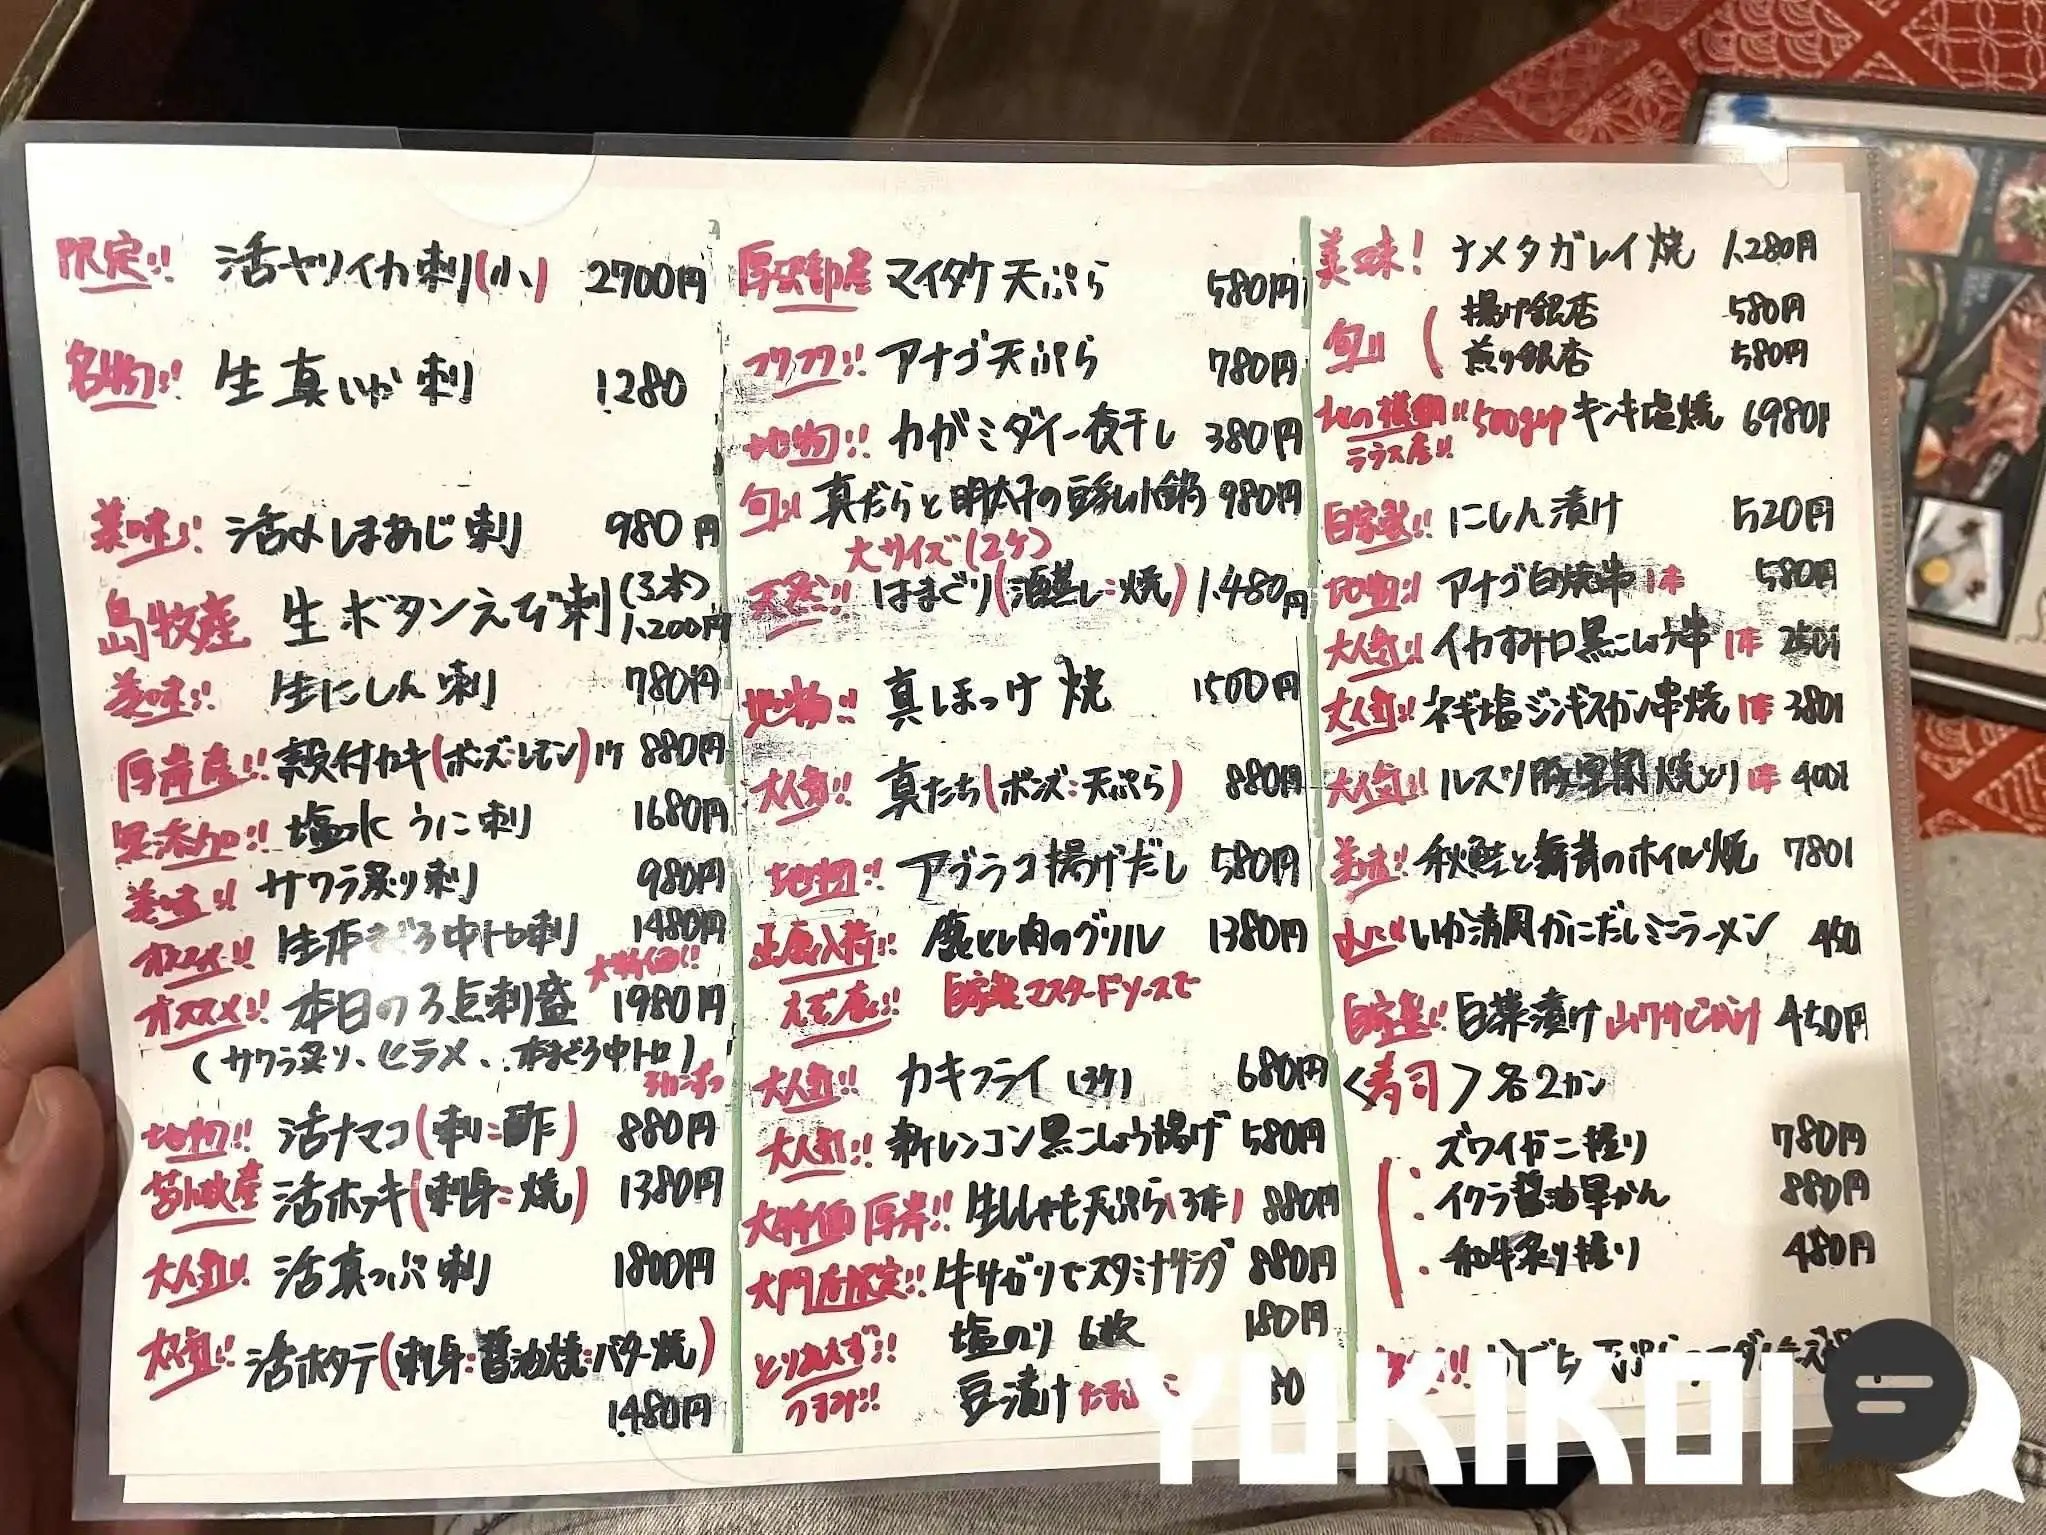 限定!! 活ヤリイカ刺(小) 2700円
名物!! 生真いか刺 1.280
美味!! 活〆しまあじ刺 980円
島牧産 生ボタンえび刺 (3本) 1.200円
美味!! 生にしん刺 780円
厚岸産!! 殻付カキ(ポンズ:レモン)1ケ 880円
無添加!! 塩水うに刺 1680円
美味!! サワラ炙り刺 980円
オススメ!! 生本まぐろ中トロ刺 1480円
大特価!!
オススメ!! 本日の3点刺盛 1980円
(サワラ炙り、ヒラメ、本まぐろ中トロ)
地物!! 活ナマコ(刺:酢) 880円
産 活ホッキ(刺身:焼) 1380円
大人気!! 活真つぶ刺 1800円
大人気!! 活ホタテ(刺身:醤油焼:バター焼)
1.480円
厚沢部産 マイタケ天ぷら 580円
フワフワ!! アナゴ天ぷら 780円
地物!! カガミダイ一夜干し 380円
旬!! 真だらと明太子の豆乳小鍋 980円
大サイズ(2ケ)
天然!! はまぐり(酒蒸し:焼) 1.480円
地物!! 真ほっけ焼 1500円
大人気!! 真たち(ポンズ:天ぷら) 880円
地物!! アブラコ揚げだし 580円
入荷!! 鹿とし肉のグリル 1380円
えぞ鹿!! 自家製マスタードソースで
大人気!! カキフライ(3ケ) 680円
大人気!! 新レンコン黒こしょう揚げ 580円
大特価 厚岸!! 生ししゃも天ぷら(3本) 880円
大門店限定!! 牛サガリでスタミナサラダ 880円
とりあえず!! 塩のり 6枚 180円
豆漬け 80
美味! ナメタガレイ焼 1.280円
旬!! ( 揚げ銀杏 580円
煎り銀杏 580円
500gup キンキ塩焼 6980円
ラウス産!!
自家製!! にしん漬け 520円
地物!! アナゴ白焼串 1本 580円
大人気!! イカすみトロ黒こしょう串 1本
大人気!! ネギ塩ジンギスカン串焼 1本 380円
大人気!! ルスツ豚 焼とり 1本 400円
美味!! 秋鮭と舞茸のホイル焼 780円
〆に!! いか清風かにだしミニラーメン 450
自家製!! 白菜漬け 山ワサビがけ 450円
<寿司> 各2カン
ズワイガニ握り 780円
イクラ醤油軍かん 880円
和牛炙り握り 480円
YUKIKOI